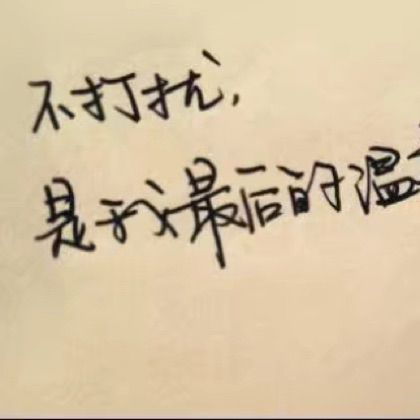 不打扰,
是我最后的温